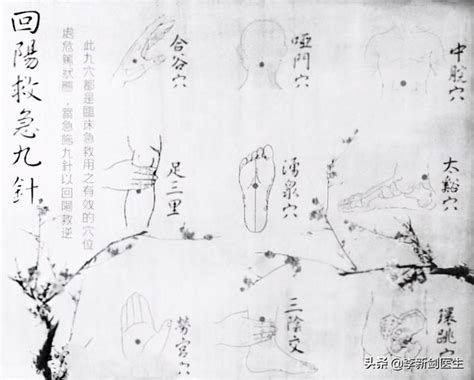 回陽救急九針
此九穴都是臨床急救用之有效的穴位
處危篤狀態,當急施九針以回陽救逆
合谷穴
啞門穴
中脘穴
足三里
湧泉穴
太谿穴
勞宮穴
三陰交
環跳穴
头条 @李新剑医生